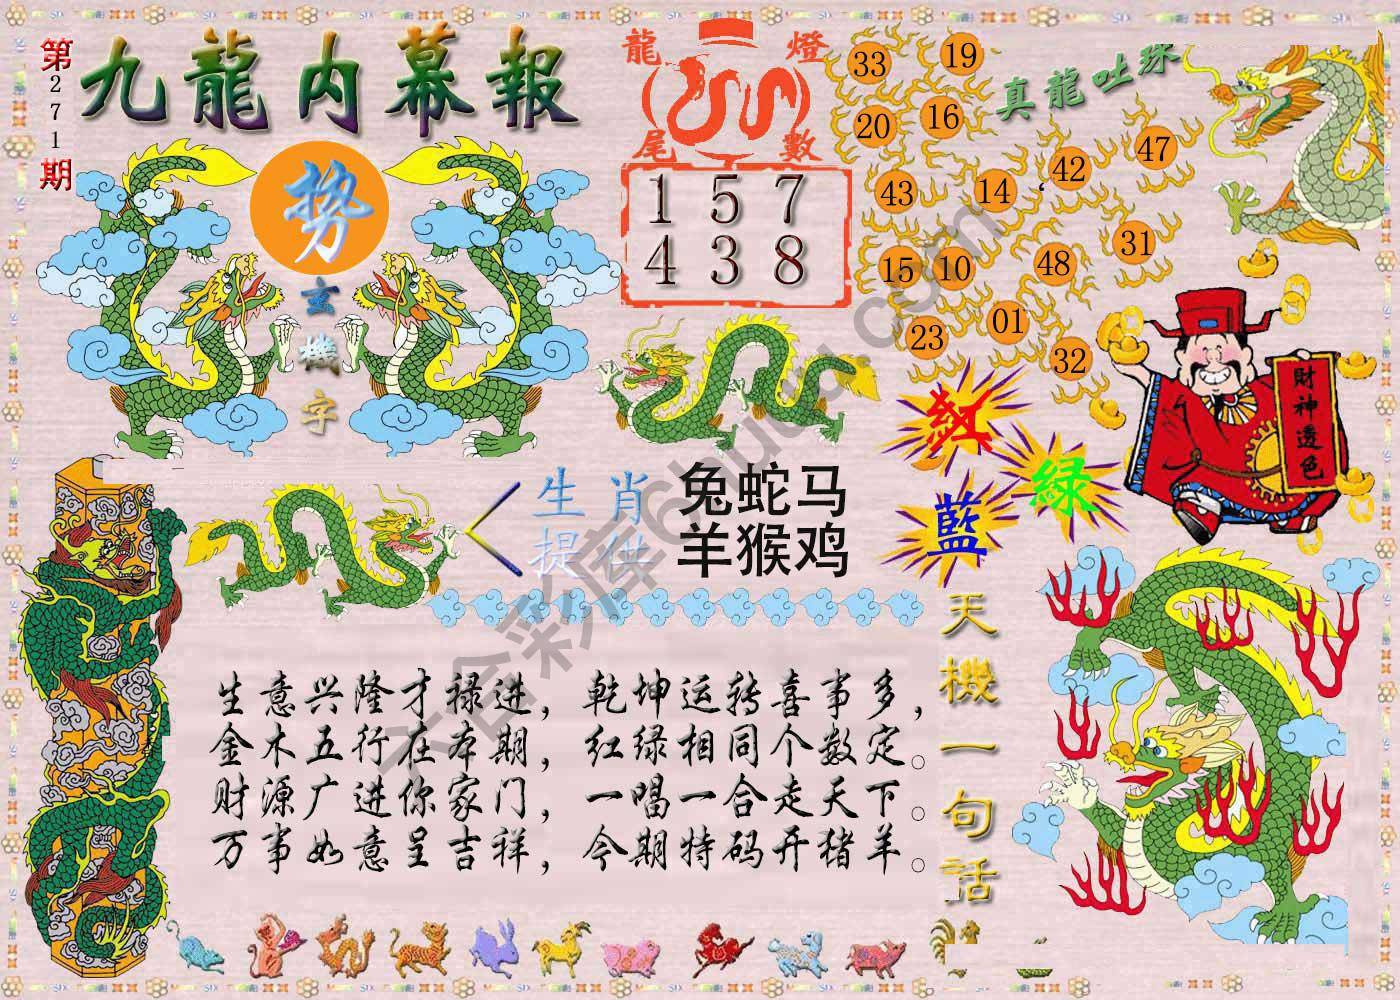 第271期
九龍内幕報
势
玄機字
龍燈
尾數
1 5 7
4 3 8
33
19
20
16
43
14
42
47
15
10
48
31
23
01
32
真龍吐珠
財神透色
紅
綠
藍
生肖
提供
兔蛇马
羊猴鸡
生意兴隆才禄进，乾坤运转喜事多，
金木五行在本期，红绿相同个数定。
财源广进你家门，一唱一合走天下。
万事如意呈吉祥，今期特码开猪羊。
天機一句话
六合彩库6huua.com